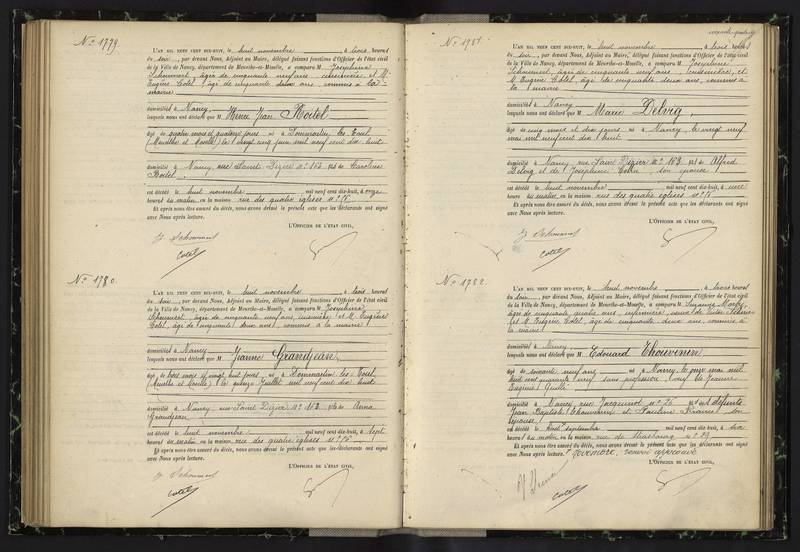 N.º 1779.
L'AN MIL NEUF CENT DIX-HUIT, le huit novembre, à trois heures
du soir, par devant Nous, Adjoint au Maire, délégué faisant fonctions d'Officier de l'état civil
de la Ville de Nancy, département de Meurthe-et-Moselle, a comparu M Joséphine
Schoumert, âgée de cinquante neuf ans, et M.
Eugène Cotel, âgé de cinquante deux ans, commis à la
mairie
domiciliés à Nancy,
lesquels nous ont déclaré que M Henri Jean Boitel,
âgé de quatre mois et quatorze jours né à Sommartin les Toul
(Meurthe et Moselle) le vingt cinq juin mil neuf cent dix huit
domicilié à Nancy, rue Saint Dizier nº 162 fils de Caroline
Boitel
est décédé le huit novembre mil neuf cent dix-huit, à onze
heures du matin, en la maison rue des quatre églises nº 15.
Et après nous être assuré du décès, nous avons dressé le présent acte que les déclarants ont signé
avec Nous après lecture.
L'OFFICIER DE L'ÉTAT CIVIL,
J. Schoumert
Cotel
N.º 1780.
L'AN MIL NEUF CENT DIX-HUIT, le huit novembre, à trois heures
du soir, par devant Nous, Adjoint au Maire, délégué faisant fonctions d'Officier de l'état civil
de la Ville de Nancy, département de Meurthe-et-Moselle, a comparu M Joséphine
Schoumert, âgée de cinquante neuf ans, et M. Eugène
Cotel, âgé de cinquante deux ans, commis à la mairie
domiciliés à Nancy
lesquels nous ont déclaré que M Jeanne Grandjean,
âgé de trois mois et vingt huit jours, né à Sommartin les Toul
(Meurthe et Moselle) le quinze Juillet mil neuf cent dix huit
domicilié à Nancy rue Saint Dizier nº 162 fils de Anna
Grandjean
est décédé le huit novembre mil neuf cent dix-huit, à sept
heures du matin, en la maison rue des quatre églises nº 15.
Et après nous être assuré du décès, nous avons dressé le présent acte que les déclarants ont signé
avec Nous après lecture.
L'OFFICIER DE L'ÉTAT CIVIL,
J. Schoumert
Cotel
N.º 1781.
L'AN MIL NEUF CENT DIX-HUIT, le huit novembre, à trois heures
du soir, par devant Nous, Adjoint au Maire, délégué faisant fonctions d'Officier de l'état civil
de la Ville de Nancy, département de Meurthe-et-Moselle, a comparu M Joséphine
Schoumert, âgée de cinquante neuf ans, et
M. Eugène Cotel, âgé de cinquante deux ans, commis à
la mairie
domiciliés à Nancy
lesquels nous ont déclaré que M Marie Delvig,
âgé de cinq mois et dix jours né à Nancy, le vingt neuf
mai mil neuf cent dix huit
domicilié à Nancy, rue Saint Dizier nº 162 fils de Alfred
Delvig et de Joséphine son épouse
est décédé le huit novembre mil neuf cent dix-huit, à une
heure du matin, en la maison rue des quatre églises nº 15
Et après nous être assuré du décès, nous avons dressé le présent acte que les déclarants ont signé
avec Nous après lecture.
L'OFFICIER DE L'ÉTAT CIVIL,
J. Schoumert
Cotel
N.º 1782.
L'AN MIL NEUF CENT DIX-HUIT, le huit novembre, à trois heures
du soir, par devant Nous, Adjoint au Maire, délégué faisant fonctions d'Officier de l'état civil
de la Ville de Nancy, département de Meurthe-et-Moselle, a comparu M Suzanne
âgée de cinquante quatre ans, infirmière, veuve de
et M. Eugène Cotel, âgé de cinquante deux ans, commis à
la mairie
domiciliés à Nancy
lesquels nous ont déclaré que M Edouard Thouvenin
âgé de soixante neuf ans né à Nancy, le onze mai mil
huit cent quarante neuf sans profession, veuf de Jeanne
Eugénie
domicilié à Nancy rue Jacquinot nº 26 fils de défunts
Jean Baptiste Thouvenin et Pauline son
épouse
est décédé le huit septembre mil neuf cent dix-huit, à six
heures du matin, en la maison rue de Strasbourg nº 29
Et après nous être assuré du décès, nous avons dressé le présent acte que les déclarants ont signé
avec Nous après lecture. novembre, renvoi approuvé
L'OFFICIER DE L'ÉTAT CIVIL,
Cotel